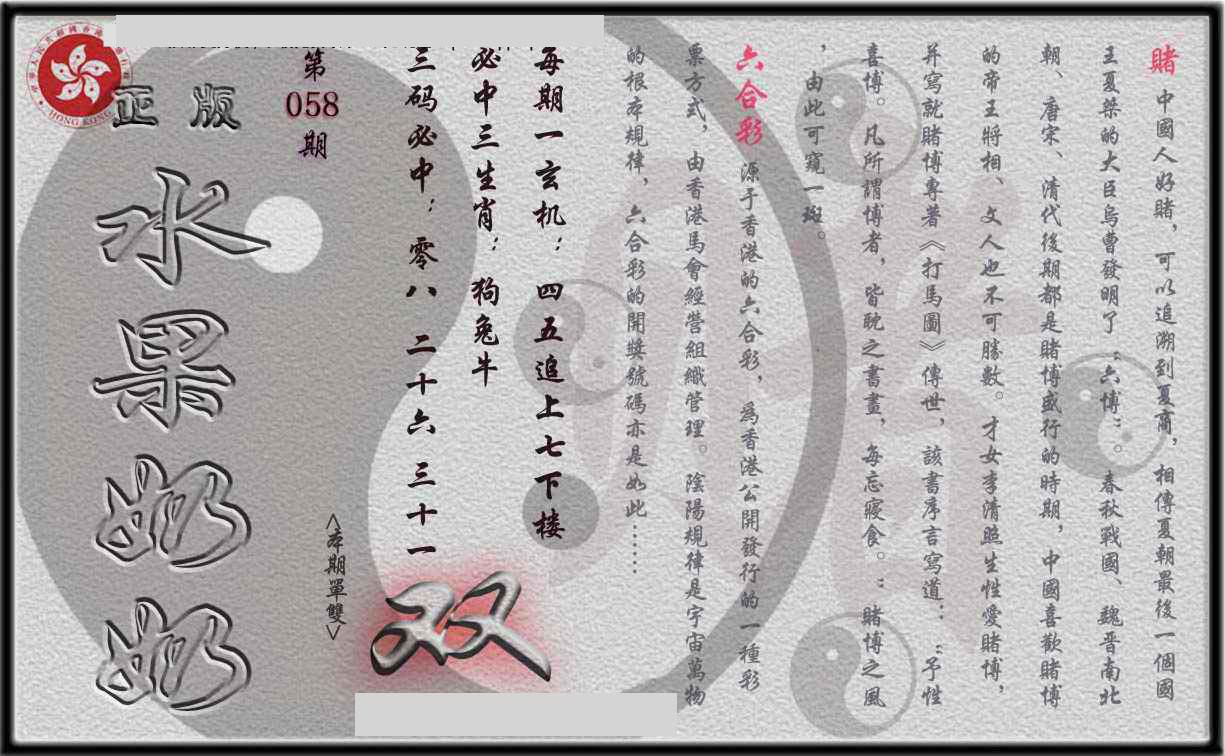 賭 中國人好賭，可以追溯到夏商，相傳夏朝最後一個國
王夏桀的大臣烏曹發明了“六博”。春秋戰國、魏晉南北
朝、唐宋、清代後期都是賭博盛行的時期，中國喜歡賭博
的帝王將相、文人也不可勝數。才女李清照生性愛賭博，
并寫就賭博專著《打馬圖》傳世，該書序言寫道：“予性
喜博。凡所謂博者，皆耽之書畫，每忘寢食。”賭博之風
，由此可窺一斑。
六合彩 源于香港的六合彩，為香港公開發行的一種彩
票方式，由香港馬會經營組織管理。陰陽規律是宇宙萬物
的根本規律，六合彩的開獎號碼亦是如此……
每期一玄机：四五追上七下楼
必中三生肖：狗兔牛
三码必中：零八 二十六 三十一
双
<本期單雙>
第
058
期
正版
水果奶奶
HONG KONG